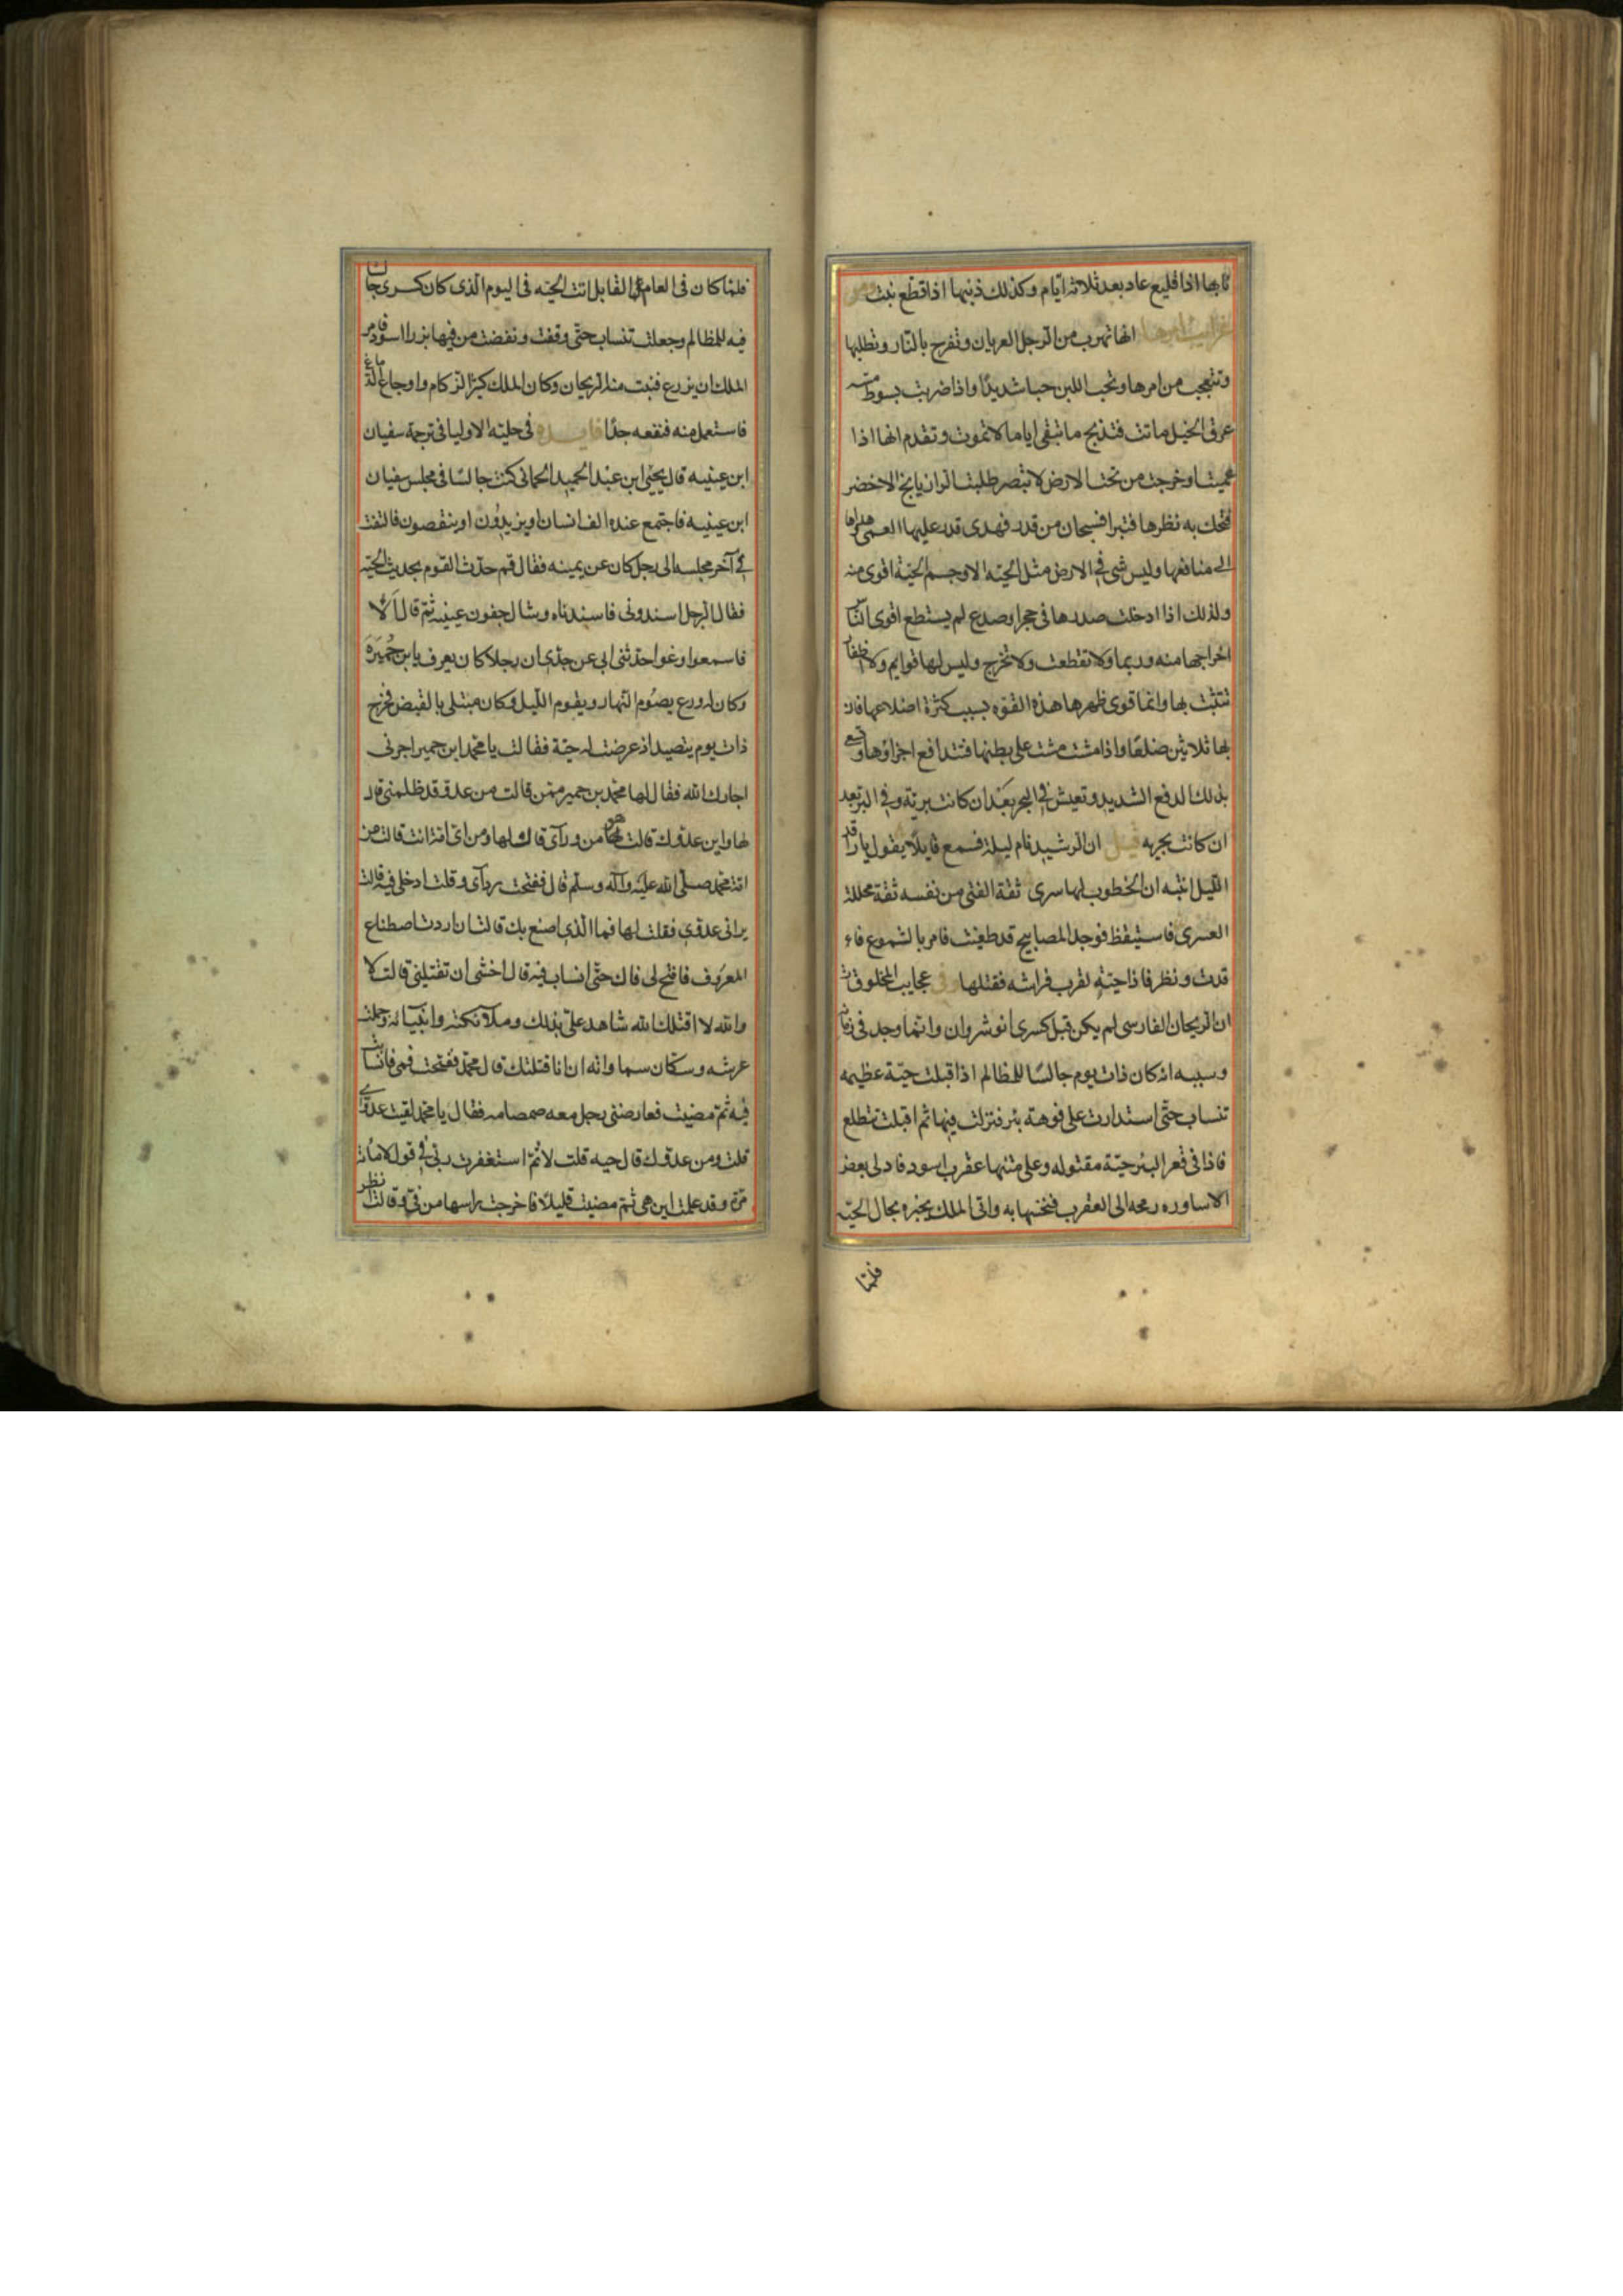 نابها اذا قلع عاد بعد ثلاثة ايام وكذلك ذنبها اذا قطع نبت ومن
غرايب امرها انها تهرب من الرجل العريان وتفرح بالنار وتطلبها
وتتعجب من امرها وتحب اللبن حبا شديدًا واذا ضربت بسوط مسه
عرق الخيل ماتت فتذبح ما تبقى اياما لا تموت وتقدم انها اذا
عميت او خرجت من تحت الارض لا تبصر طلبت الرازيانج الاخضر
فتحك به نظرها فتبرا فسبحان من قدر فهدى قدر عليها العمى وهداها
الى منافعها وليس شى في الارض مثل الحيّه الا وجسم الحيّة اقوى منه
ولذلك اذا ادخلت صدرها فى حجر او صدع لم يستطع اقوى النّاس
اخراجها منه وربما ولا تقطعت ولا تخرج وليس لها قوايم ولا اظفار
تتثبت بها وانما قوى ظهرها هذه القوه بسبب كثرة اضلاعها فان
لها ثلاثين ضلعًا واذا مشت مشت على بطنها فتتدافع اجزاؤها وتسعى
بذلك الدفع الشديد وتعيش في البحر بعد ان كانت بريّة وفي البر بعد
ان كانت بحريه قيل ان الرشيد نام ليلة فسمع قايلًا يقول يا راقد
الليل انتبه ان الخطوب لها سرى ثقة الفتى من نفسه ثقة محللة
العرى فاستيقظ فوجد المصابيح قد طفئت فامر بالشموع فاو
قدت ونظر فاذا حيّة لقرب فراشه فقتلها وفى عجايب المخلوقات
ان الريحان الفارسى لم يكن قبل كسرى انوشروان وانما وجد فى زمانه
وسببه انه كان ذات يوم جالسًا للمظالم اذا قبلت حيّة عظيمه
تنساب حتّى استدارت على فوهة بئر فنزلت فيها ثم اقبلت تتطلع
فاذا فى قعر البئر حيّة مقتوله وعلى متنها عقرب اسود فادلى بعض
الاساوره رمحه الى العقرب فنخسها به واتى الملك يخبره بحال الحيّه
فلمّا
فلمّا كان فى العام القابل اتت الحيّه فى اليوم الّذى كان كسرى جالسًا
فيه للمظالم وجعلت تنساب حتّى وقفت ونفضت من فيها بزرا اسود فامر
الملك ان يزرع فنبت منه الريحان وكان الملك كثير الزكام واوجاع الدماغ
فاستعمل منه فنفعه جدًا فايده فى حلية الاوليا فى ترجمة سفيان
ابن عيينه قال يحيٰى ابن عبد الحميد الحمانى كنت جالسًا فى مجلس سفيان
ابن عيينه فاجتمع عنده الف انسان او يزيدُون او ينقصون فالتفت
في آخر مجلسه الى رجل كان عن يمينه فقال قم حدّث القوم بحديث الحيّه
فقال الرجل اسندونى فاسندناه وشال جفون عينيه ثمّ قال اَلا
فاسمعوا وعوا حدّثنى ابى عن جدّى ان رجلا كان يعرف بابن حُمَيرَه
وكان له ورع يصُوم النهار ويقوم اللّيل وكان مبتلى بالقبض فخرج
ذات يوم يتصيد اذ عرضت له حيّة فقالت يا محمّد ابن حمير اجرنى
اجارك الله فقال لها محمّد بن حمير ممّن قالت من عدوّ قد ظلمنى قال
لها واين عدوّك قالت من ورآى قال لها ومن اىّ امّة انت قالت من
امّة محمّد صلّى الله عليه وآله وسلّم قال ففتحت ردآى وقلت ادخلى فيه قالت
يرانى عدوّى فقلت لها فما الّذى اصنع بك قالت ان اردت اصطناع
المعرُوف فافتح لى فاك حتّى انساب فيه قال اخشى ان تقتلينى قالت لا
والله لا اقتلك الله شاهد علىّ بذلك وملآئكته وانبيائه وحملة
عرشه وسكّان سمواته ان انا قتلتك قال محمّد ففتحت فمى فانسابت
فيه ثمّ مضيت فعارضنى رجل معه صمصامه فقال يا محمّد لقيت عدوّى
قلت ومن عدوّك قال حيه قلت لا ثمّ استغفرت ربّى في قولى لا مائة
مرّة وقد علمت اين هى ثمّ مضيت قليلًا فاخرجت راسها من فىّ وقالت انظر